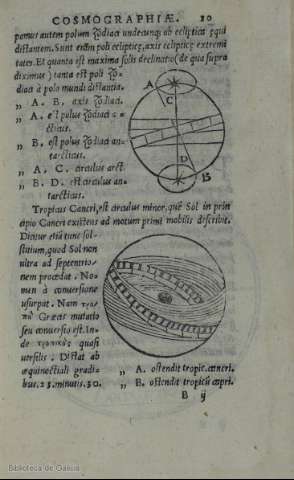 COSMOGRAPHIÆ. 10
pamus autem polum Zodiaci undecunq; ab ecliptica æqui
distantem. Sunt enim poli eclipticę, axis eclipticę extremi
tates. Et quanta est maxima solis declinatio (de qua supra
diximus) tanta est poli Zo-
diaci à polo mundi distantia.
„ A. B. axis Zodiaci.
„ A. est polus Zodiaci ar-
cticus.
„ B. est polus Zodiaci an-
tarcticus.
„ A. C. circulus arct.
„ B. D. est circulus an-
tarcticus.
A
C
D
B
Tropicus Cancri, est circulus minor, quē Sol in prin
cipio Cancri existens ad motum primi mobilis describit.
Dicitur etiā tunc sol-
stitium, quod Sol non
ultra ad septentrio-
nem procedat. No-
men à conuersione
usurpat. Nam τρο-
πὴ Græcis mutatio
seu conuersio est. In-
de τροπικὸς quasi
uersilis. Distat ab
æquinoctiali gradi-
bus. 23. minutis. 30.
„ A. ostendit tropic. cancri.
„ B. ostendit tropicū capri.
B ij
Biblioteca de Galicia